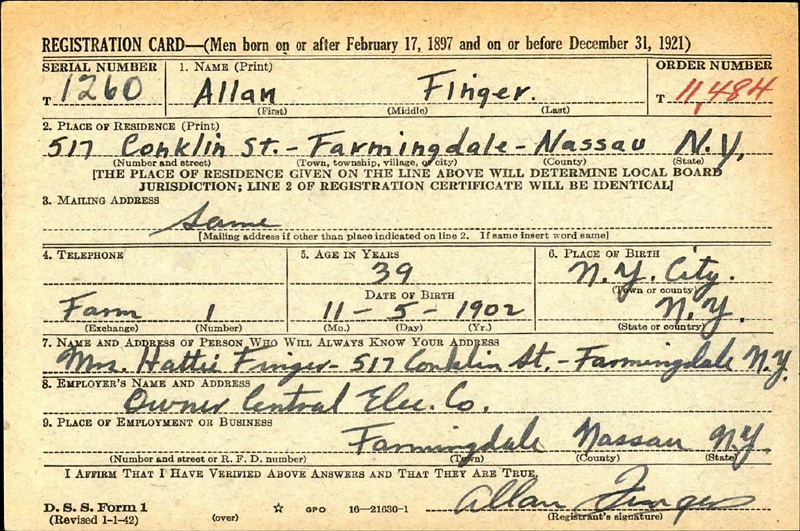 REGISTRATION CARD—(Men born on or after February 17, 1897 and on or before December 31, 1921)
SERIAL NUMBER 1. NAME (Print) ORDER NUMBER
T 1260 Allan Finger. T 11,484
(First) (Middle) (Last)
2. PLACE OF RESIDENCE (Print)
517 Conklin St. - Farmingdale - Nassau N.Y.
(Number and street) (Town, township, village, or city) (County) (State)
[THE PLACE OF RESIDENCE GIVEN ON THE LINE ABOVE WILL DETERMINE LOCAL BOARD
JURISDICTION; LINE 2 OF REGISTRATION CERTIFICATE WILL BE IDENTICAL]
3. MAILING ADDRESS
Same
[Mailing address if other than place indicated on line 2. If same insert word same]
4. TELEPHONE 5. AGE IN YEARS 6. PLACE OF BIRTH
39 N.Y. City.
DATE OF BIRTH (Town or county)
Farm 1 11 - 5 - 1902 N.Y.
(Exchange) (Number) (Mo.) (Day) (Yr.) (State or country)
7. NAME AND ADDRESS OF PERSON WHO WILL ALWAYS KNOW YOUR ADDRESS
Mrs. Hattie Finger - 517 Conklin St. - Farmingdale N.Y.
8. EMPLOYER'S NAME AND ADDRESS
Owner Central Elec. Co.
9. PLACE OF EMPLOYMENT OR BUSINESS
Farmingdale Nassau N.Y.
(Number and street or R. F. D. number) (Town) (County) (State)
I AFFIRM THAT I HAVE VERIFIED ABOVE ANSWERS AND THAT THEY ARE TRUE.
Allan Finger
D. S. S. Form 1
(Revised 1-1-42) (over) ☆ GPO 16—21630-1 (Registrant's signature)